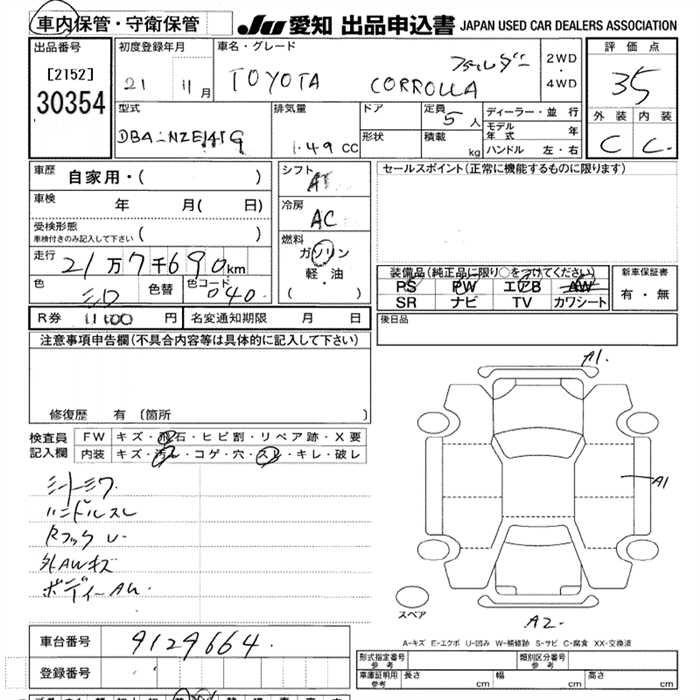 車内保管・守衛保管 JU 愛知 出品申込書 JAPAN USED CAR DEALERS ASSOCIATION
出品番号 初度登録年月 車名・グレード 2WD 評価点
[2152] 21 11月 TOYOTA CORROLLA フィールダー ・ 35
30354 4WD
型式 排気量 ドア 定員 5人 ディーラー・並行 外装 内装
DBA-NZE141G 1.49CC 形状 積載 kg モデル年式 年 C C
ハンドル 左・右
車歴 自家用・( ) シフト AT セールスポイント(正常に機能するものに限ります)
車検 年 月( 日) 冷房 AC
受検形態 ( )
車検付きのみ記入して下さい
燃料 ガソリン
走行 21万7千690km 軽・油 装備品(純正品に限り○をつけてください) 新車保証書
色 シロ 色替 色コード 040 ( ) PS PW エアB AW 有・無
SR ナビ TV カワシート
R券 11100円 名変通知期限 月 日 後日品
注意事項申告欄(不具合内容等は具体的に記入して下さい)
A1
修復歴 有 (箇所
検査員 FW キズ・飛石・ヒビ割・リペア跡・X要
記入欄 内装 キズ・汚れ・コゲ・穴・スレ・キレ・破レ
シートシワ A1
ハンドルスレ
Rフック U
外AWキズ
ボディーAU
スペア A2
A-キズ E-エクボ U-凹み W-補修跡 S-サビ C-腐食 XX-交換済
車台番号 9129664
登録番号 形式指定番号 参考 類別区分番号 参考
車庫証明用 参考 長さ cm 幅 cm 高さ cm